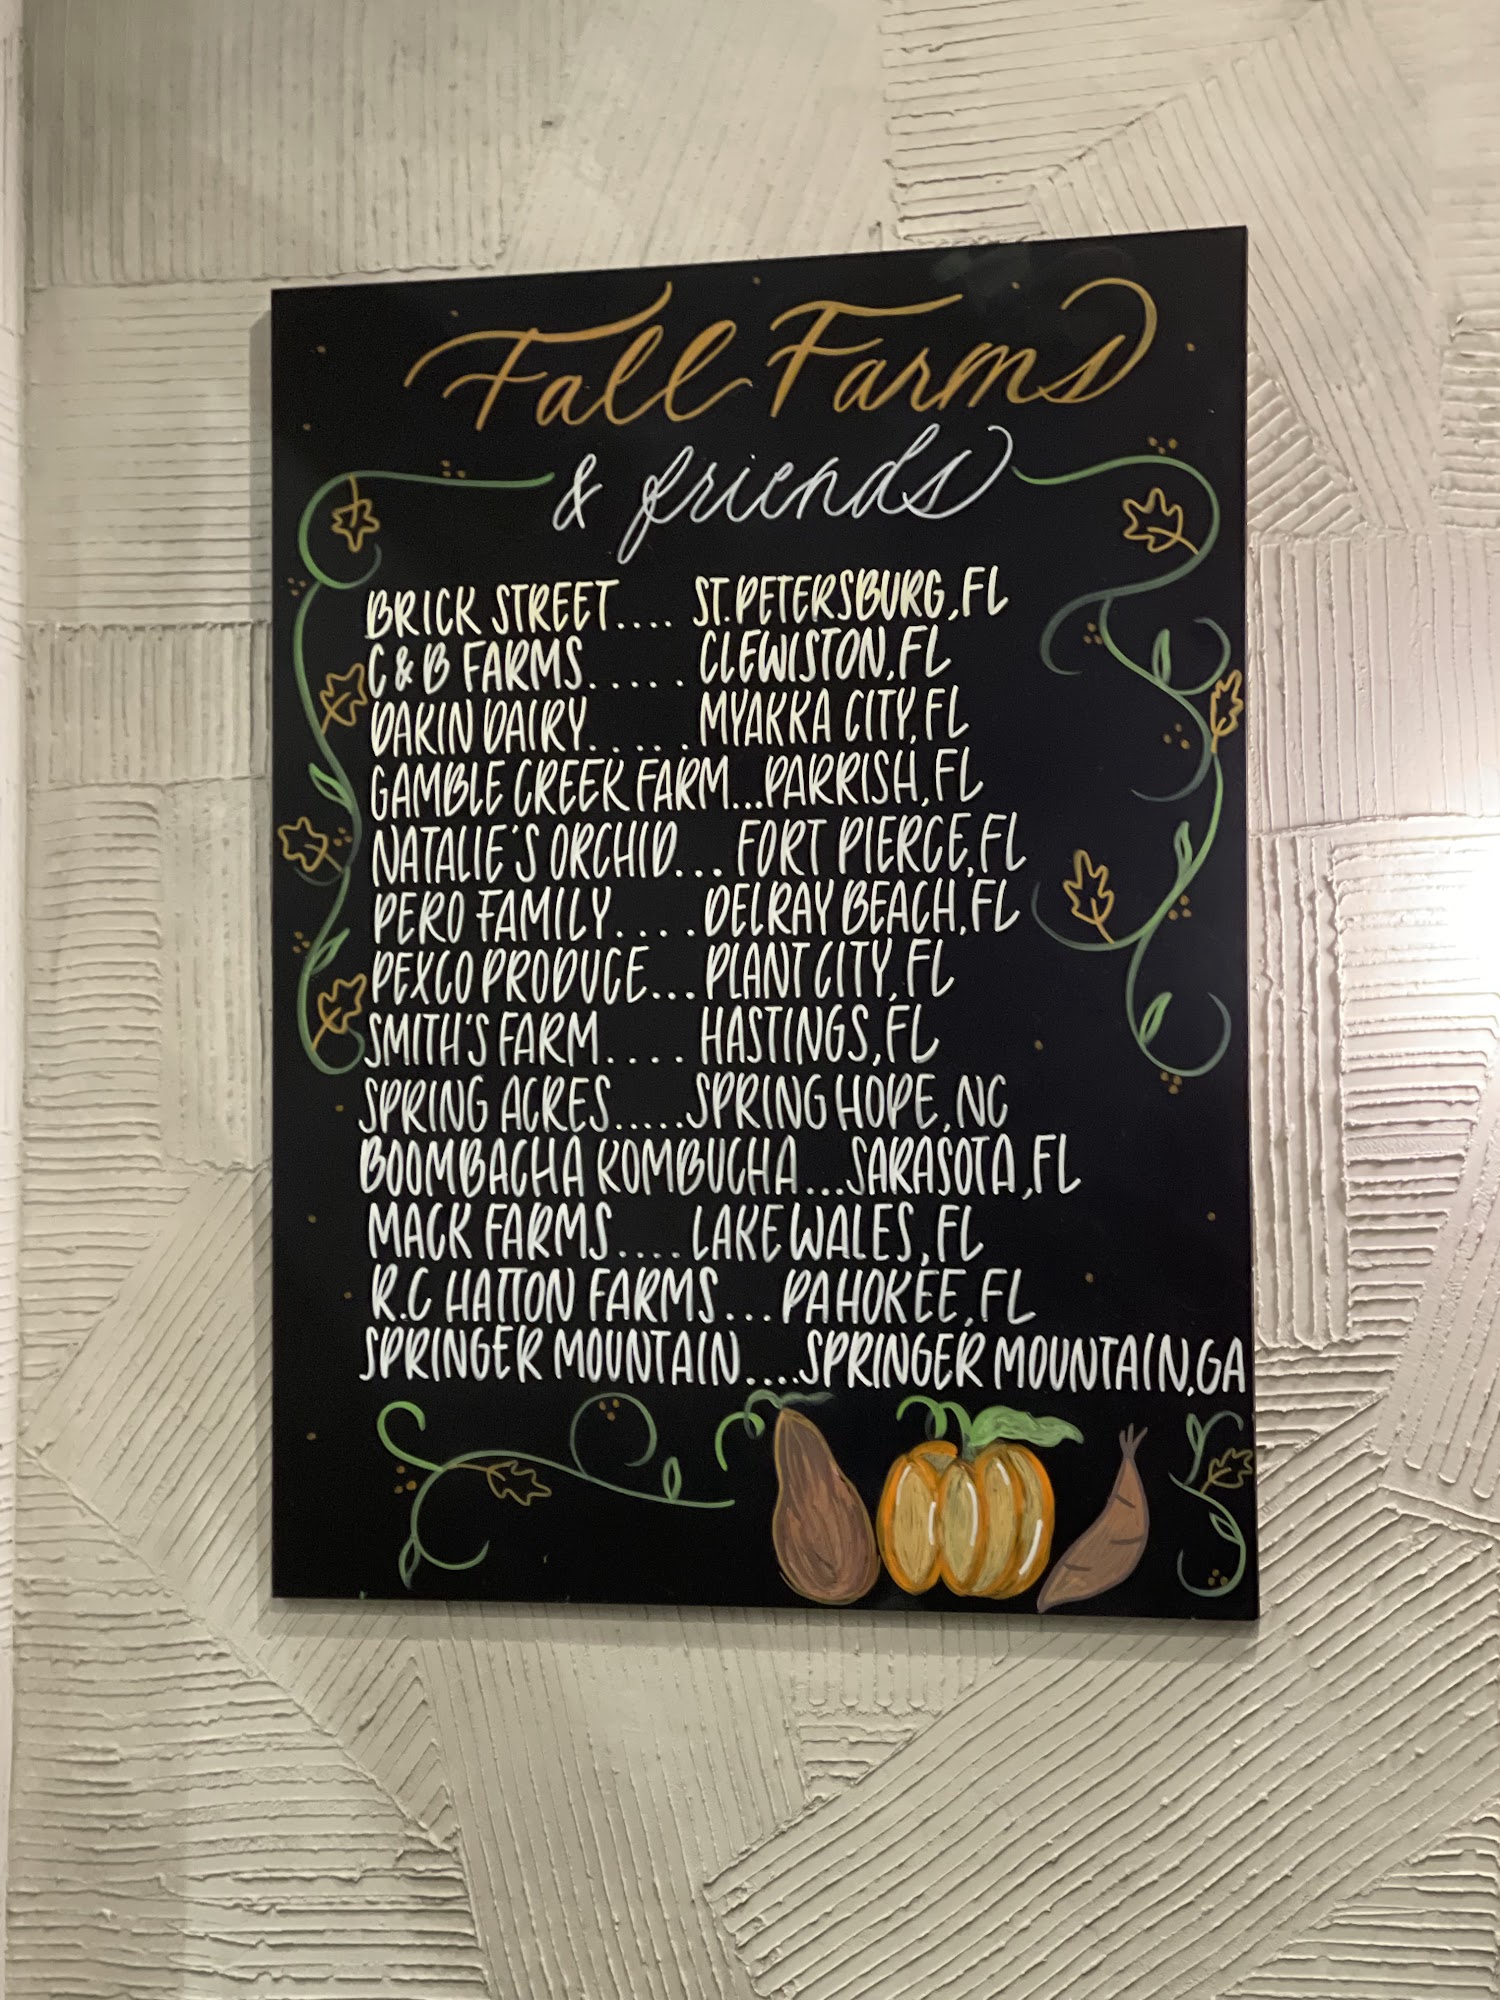 Fall Farms
& friends
BRICK STREET.... ST. PETERSBURG, FL
C & B FARMS..... CLEWISTON, FL
DAKIN DAIRY..... MYAKKA CITY, FL
GAMBLE CREEK FARM...PARRISH, FL
NATALIE'S ORCHID... FORT PIERCE, FL
PERO FAMILY....DELRAY BEACH, FL
PEXCO PRODUCE...PLANT CITY, FL
SMITH'S FARM.... HASTINGS, FL
SPRING ACRES.....SPRING HOPE, NC
BOOMBACHA KOMBUCHA...SARASOTA, FL
MACK FARMS.... LAKE WALES, FL
R.C HATTON FARMS... PAHOKEE, FL
SPRINGER MOUNTAIN....SPRINGER MOUNTAIN, GA